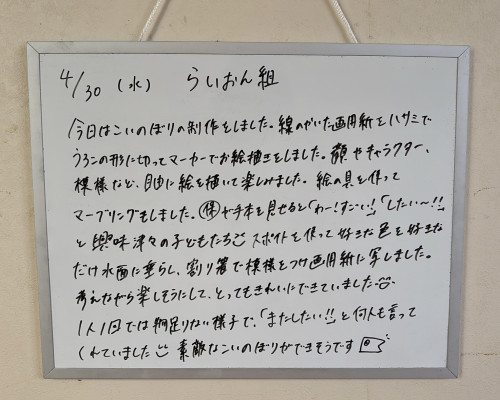 4/30 (水) らいおん組
今日はこいのぼりの制作をしました。線のかいた画用紙をハサミで
うろこの形に切ってマーカーでお絵描きをしました。顔やキャラクター、
模様など、自由に絵を描いて楽しみました。絵の具を使って
マーブリングもしました。保が手本を見せると「わー!すごい!」「したい〜!!」
と興味津々の子どもたち スポイトを使って好きな色を好きな
だけ水面に垂らし、割り箸で模様をつけ画用紙に写しました。
考えながら楽しそうにして、とってもきれいにできていました
1人1回では物足りない様子で、「またしたい!!」と何人も言って
くれていました 素敵なこいのぼりができそうです